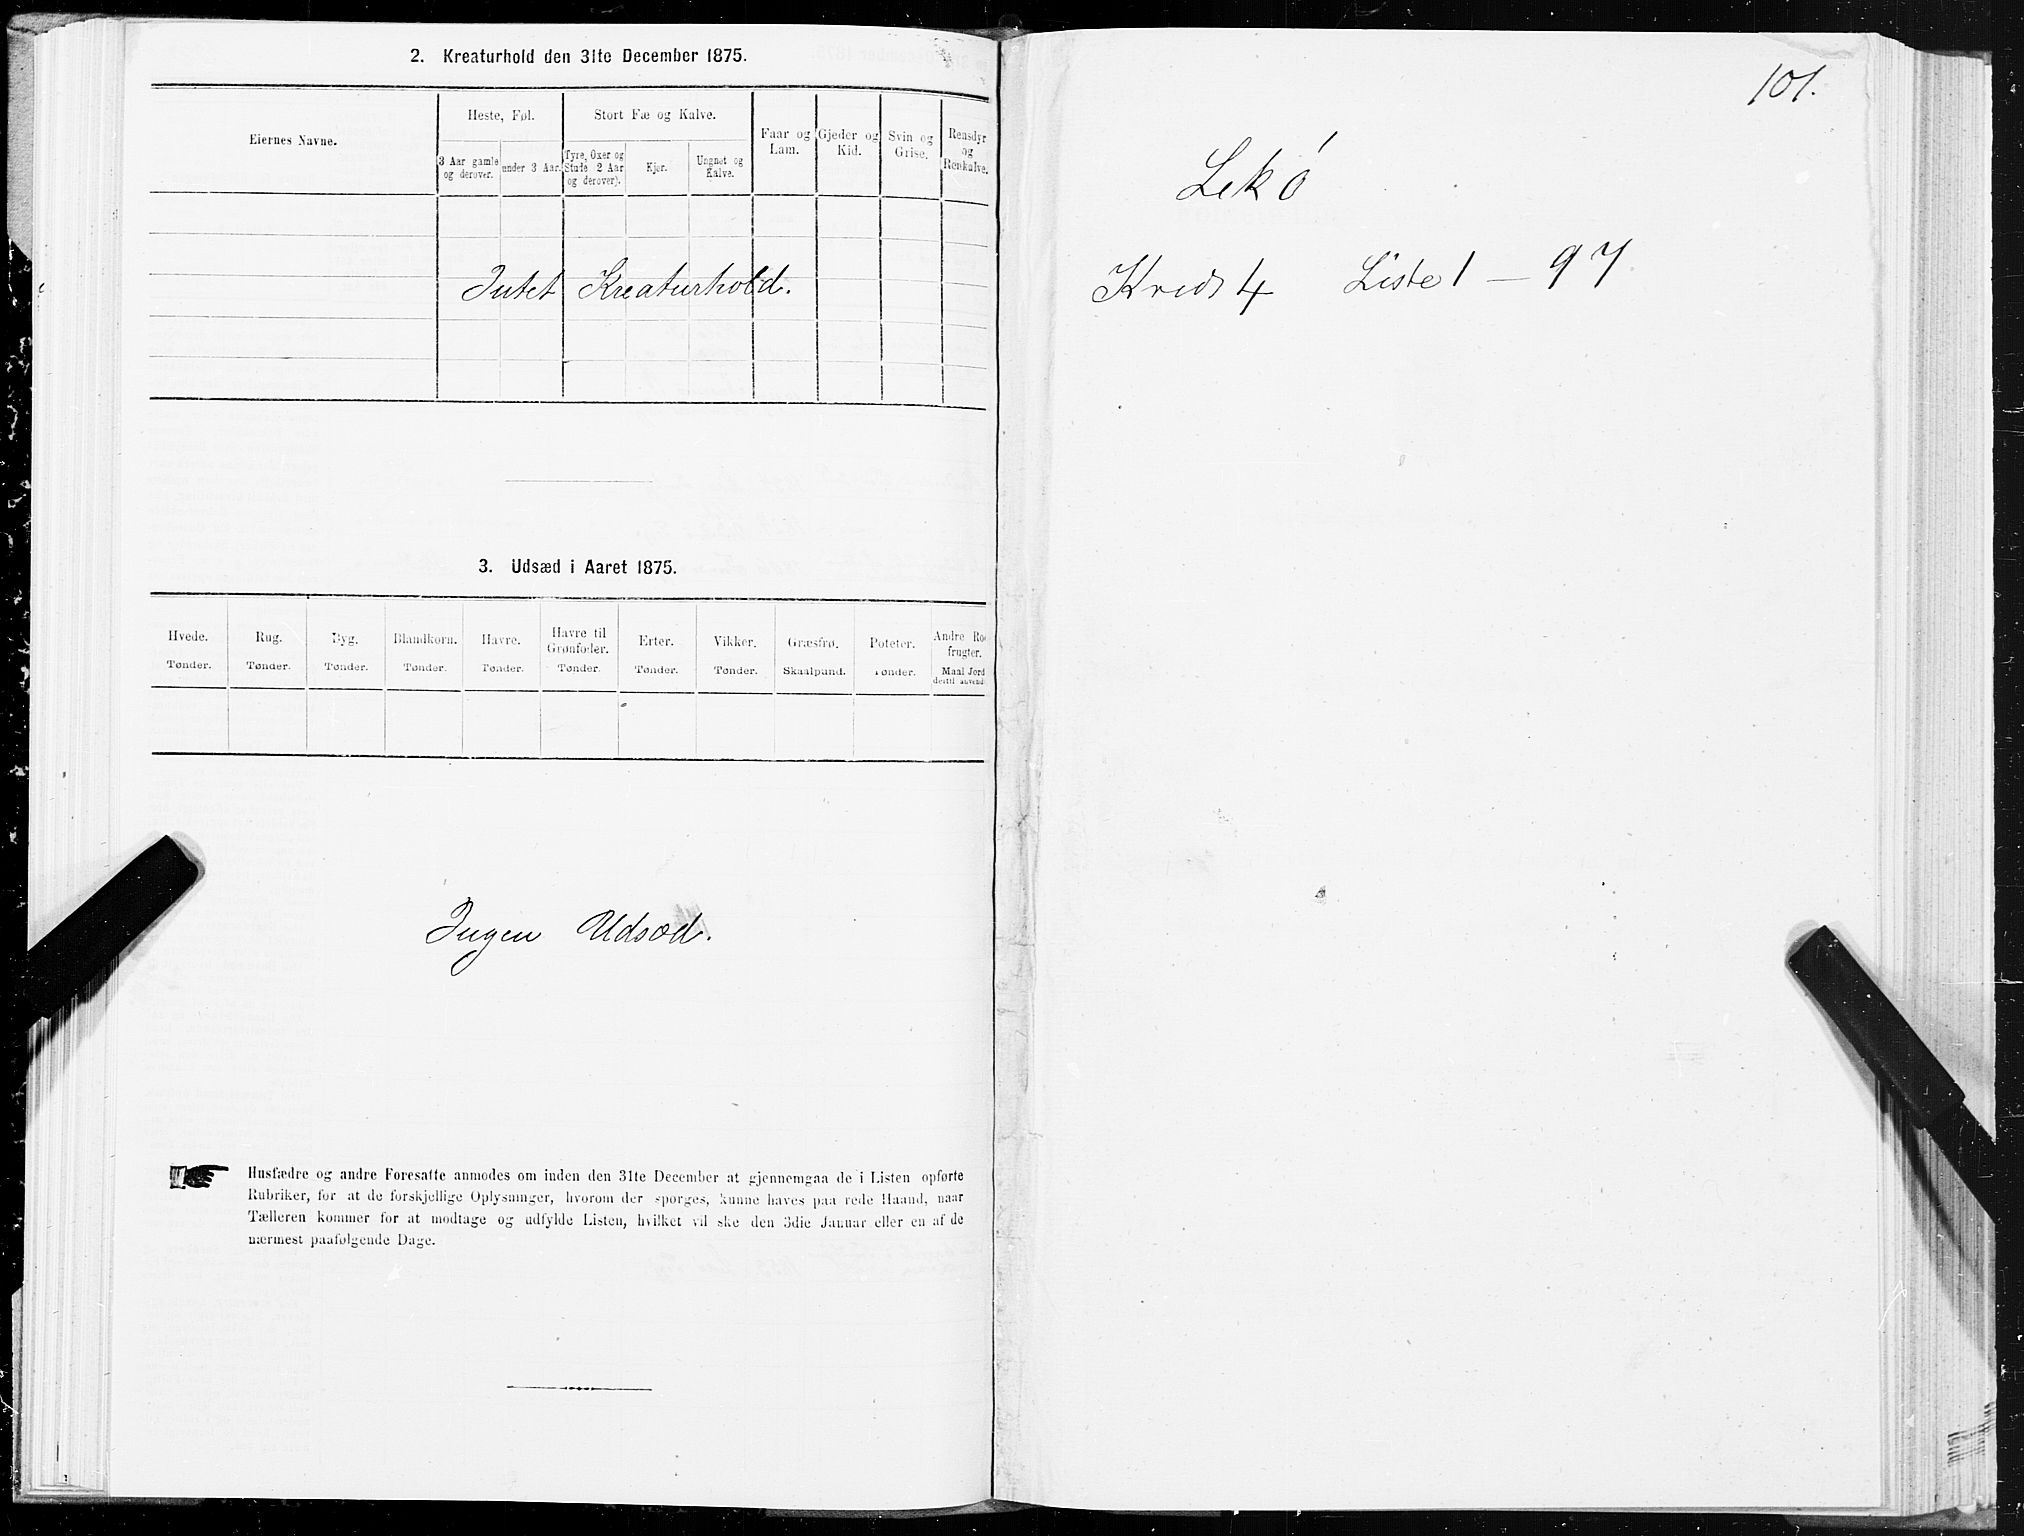 2. Kreaturhold den 31te December 1875.
Eiernes Navne.
Heste, Føl.
Stort Fæ og Kalve.
Faar og Lam.
Gjeder og Kid.
Svin og Grise.
Rensdyr og Renkalve.
3 Aar gamle og derover.
under 3 Aar.
Tyre, Oxer og Stude 2 Aar og derover).
Kjør.
Ungnet og Kalve.
Intet Kreaturhold.
3. Udsæd i Aaret 1875.
Hvede. Rug. Byg. Blandkorn. Havre. Havre til Grønfoder. Erter. Vikker. Græsfrø. Poteter. Andre Ro frugter.
Tønder. Tønder. Tønder. Tønder. Tønder. Tønder. Tønder. Tønder. Skaalpund. Tønder. Maal Jord dertil anvend
Ingen Udsæd.
Husfædre og andre Foresatte anmodes om inden den 31te December at gjennemgaa de i Listen opførte
Rubriker, for at de forskjellige Oplysninger, hvorom der spørges, kunne haves paa rede Haand, naar
Tælleren kommer for at modtage og udfylde Listen, hvilket vil ske den 3die Januar eller en af de
nærmest paafølgende Dage.
101.
Lekø
Kreds 4 Liste 1 - 97